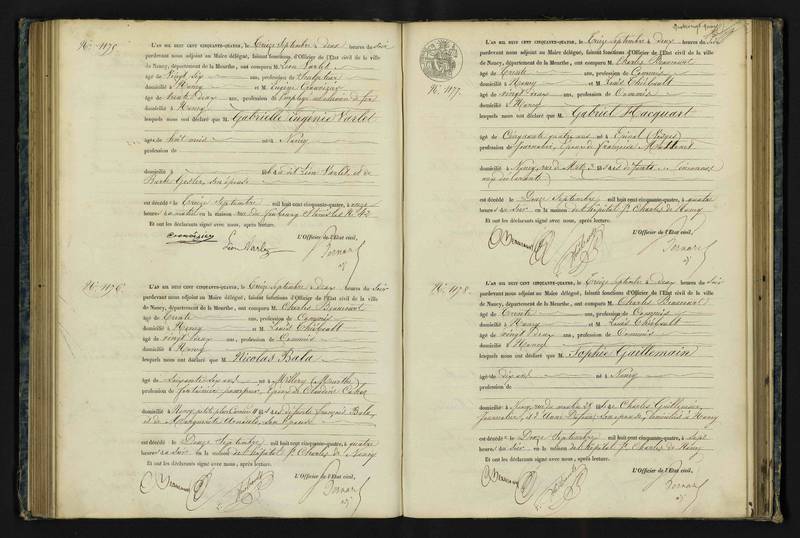 N.° 1175
L'AN MIL HUIT CENT CINQUANTE-QUATRE, le Treize Septembre à deux heures du soir
pardevant nous adjoint au Maire délégué, faisant fonctions d'Officier de l'Etat civil de la ville
de Nancy, département de la Meurthe, ont comparu M. Léon Varlet
âgé de Vingt six ans, profession de Sculpteur
domicilié à Nancy et M. Eugène
âgé de trente deux ans, profession de Employé au chemin de fer
domicilié à Nancy
lesquels nous ont déclaré que M. Gabrielle Eugénie Varlet
âgé de huit mois né à Nancy
profession de
domicilié à fille dudit Léon Varlet et de
son épouse
est décédé le Treize Septembre mil huit cent cinquante-quatre, à onze
heures du matin en la maison rue du faubourg Stanislas N.° 42
Et ont les déclarants signé avec nous, après lecture.
L'Officier de l'Etat civil,
Léon Varlet
Bernard
N.° 1176
L'AN MIL HUIT CENT CINQUANTE-QUATRE, le Treize Septembre à deux heures du soir
pardevant nous adjoint au Maire délégué, faisant fonctions d'Officier de l'Etat civil de la ville
de Nancy, département de la Meurthe, ont comparu M. Charles
âgé de trente ans, profession de Commis
domicilié à Nancy et M. Louis Thiébault
âgé de vingt deux ans, profession de Commis
domicilié à Nancy
lesquels nous ont déclaré que M. Nicolas Bala
âgé de soixante six ans né à Millery (Meurthe)
profession de pompier, époux de Claudine
domicilié à Nancy fils de défunts François Bala,
et de Marguerite son épouse
est décédé le Douze Septembre mil huit cent cinquante-quatre, à quatre
heures du soir en la maison de l'hôpital St Charles de Nancy
Et ont les déclarants signé avec nous, après lecture.
L'Officier de l'Etat civil,
Bernard
N.° 1177
L'AN MIL HUIT CENT CINQUANTE-QUATRE, le Treize Septembre à deux heures du soir
pardevant nous adjoint au Maire délégué, faisant fonctions d'Officier de l'Etat civil de la ville
de Nancy, département de la Meurthe, ont comparu M. Charles
âgé de trente ans, profession de Commis
domicilié à Nancy et M. Louis Thiébault
âgé de vingt deux ans, profession de Commis
domicilié à Nancy
lesquels nous ont déclaré que M. Gabriel Hacquart
âgé de Cinquante quatre ans né à Epinal (Vosges)
profession de journalier, époux de Françoise
domicilié à Nancy, rue de Metz 3 fils de défunts
est décédé le Douze Septembre mil huit cent cinquante-quatre, à quatre
heures du soir en la maison de l'hôpital St Charles de Nancy
Et ont les déclarants signé avec nous, après lecture.
L'Officier de l'Etat civil,
Bernard
N.° 1178
L'AN MIL HUIT CENT CINQUANTE-QUATRE, le Treize Septembre à deux heures du soir
pardevant nous adjoint au Maire délégué, faisant fonctions d'Officier de l'Etat civil de la ville
de Nancy, département de la Meurthe, ont comparu M. Charles
âgé de trente ans, profession de Commis
domicilié à Nancy et M. Louis Thiébault
âgé de vingt deux ans, profession de Commis
domicilié à Nancy
lesquels nous ont déclaré que M. Sophie Guillemain
âgé de dix ans né à Nancy
profession de
domicilié à Nancy, rue fille de Charles Guillemain,
journalier, et d'Anne son épouse, domiciliés à Nancy
est décédé le Douze Septembre mil huit cent cinquante-quatre, à sept
heures du soir en la maison de l'hôpital St Charles de Nancy
Et ont les déclarants signé avec nous, après lecture.
L'Officier de l'Etat civil,
Bernard